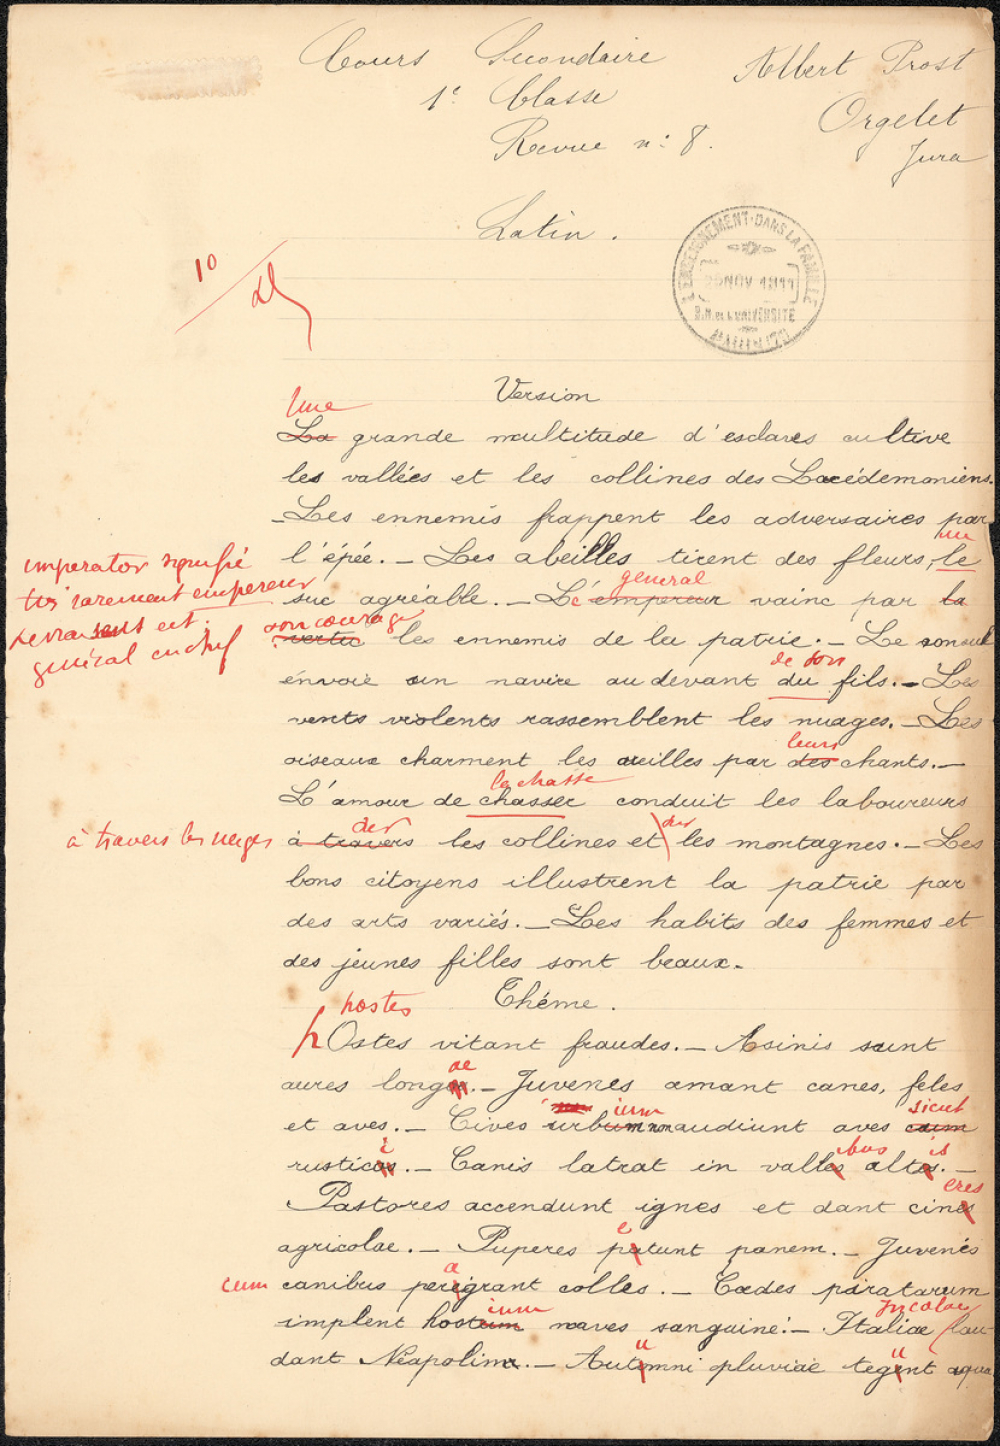 Cours Secondaire
Albert Prost
1e Classe
Orgelet
Revue n: 8.
Jura
Latin.
L'ENSEIGNEMENT DANS LA FAMILLE
NOV 1911
10
Version
Une
La grande multitude d'esclaves cultive
les vallées et les collines des Lacédemoniens.
_Les ennemis frappent les adversaires par
un
l'épée._ Les abeilles tirent des fleurs, le
imperator signifie
très rarement empereur
général
suc agréable._ Le empereur vainc par la
le vrai sens est:
général en chef
son courage
vertic les ennemis de la patrie._ Le consul
de son
envoie un navire au devant du fils._ Les
vents violents rassemblent les nuages._ Les
leurs
oiseaux charment les oreilles par des chants._
la chasse
L'amour de chasser conduit les laboureurs
à travers les neiges
des des
à travers les collines et les montagnes._ Les
bons citoyens illustrent la patrie par
des arts variés._ Les habits des femmes et
des jeunes filles sont beaux.
Thême.
hostes
h Ostes vitant fraudes._ Asinis sunt
ae
aures long._ Juvenes amant canes, feles
ium sicut
et aves._ Cives urbium non audiunt aves cum
i bus is
rusticos._ Canis latrat in valles altos._
eres
Pastores accendunt ignes et dant cines
e
agricolae._ Puperes petunt panem._ Juvenes
cum
a
canibus perigrant colles._ Cædes piratarum
ium incolae
implent hostium naves sanguine._ Italiæ lau-
u u
dant Neapolim._ Autumni pluviae tegunt aqua